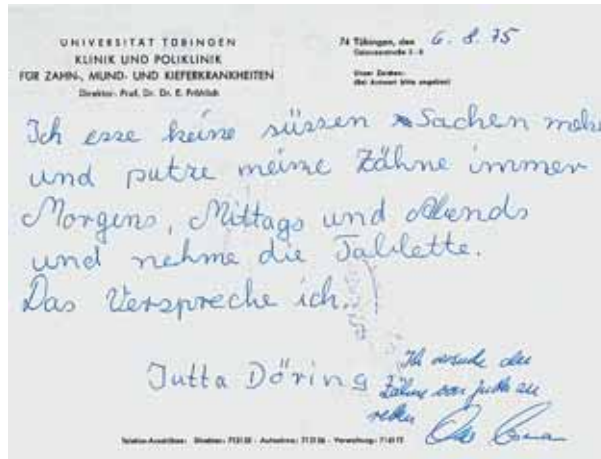 UNIVERSITÄT TÜBINGEN
KLINIK UND POLIKLINIK
FÜR ZAHN-, MUND- UND KIEFERKRANKHEITEN
Direktor: Prof. Dr. Dr. E. Fröhlich
74 Tübingen, den 6. 8. 75
Unser Zeichen:
(Bei Antwort bitte angeben)
Ich esse keine süssen Sachen mehr
und putze meine Zähne immer
Morgens, Mittags und Abends
und nehme die Tablette.
Das Verspreche ich.
Jutta Döring
Ich werde die
Zähne von Jutta zu
retten
Telefon-Anschlüsse: Direktor: Aufnahme: Verwaltung: